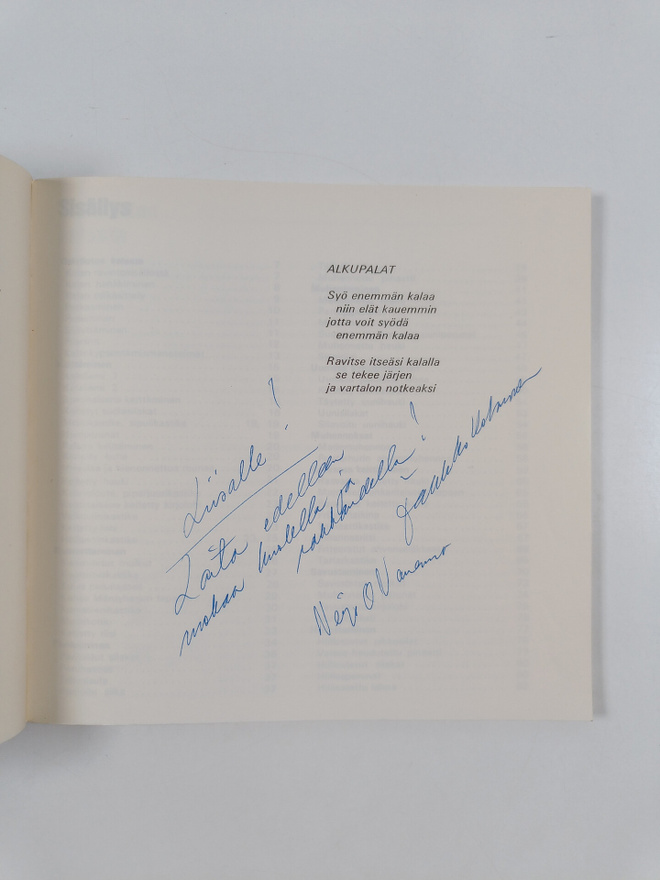 Sisällys
ALKUPALAT
Syö enemmän kalaa
niin elät kauemmin
jotta voit syödä
enemmän kalaa
Ravitse itseäsi kalalla
se tekee järjen
ja vartalon notkeaksi
Liisalle!
Laita edelleen
ruokaa huolella ja
rakkaudella!
Jaakko Kolmonen
Veijo O Vanamo